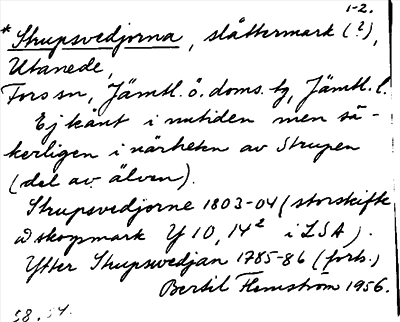 1-2.
*Strupsvedjorna, slåttermark (?),
Utanede,
Fors sn, Jämtl. ö. doms. tg, Jämtl. l.
Ej känt i nutiden men sä-
kerligen i närheten av Strupen
(del av älven).
Strupsvedjorne 1803-04 (storskifte
å skogsmark Y 10, 14² i LSA).
Ytter Strupswedjan 1785-86 (forts.)
Bertil Flemström 1956.
58. 54.